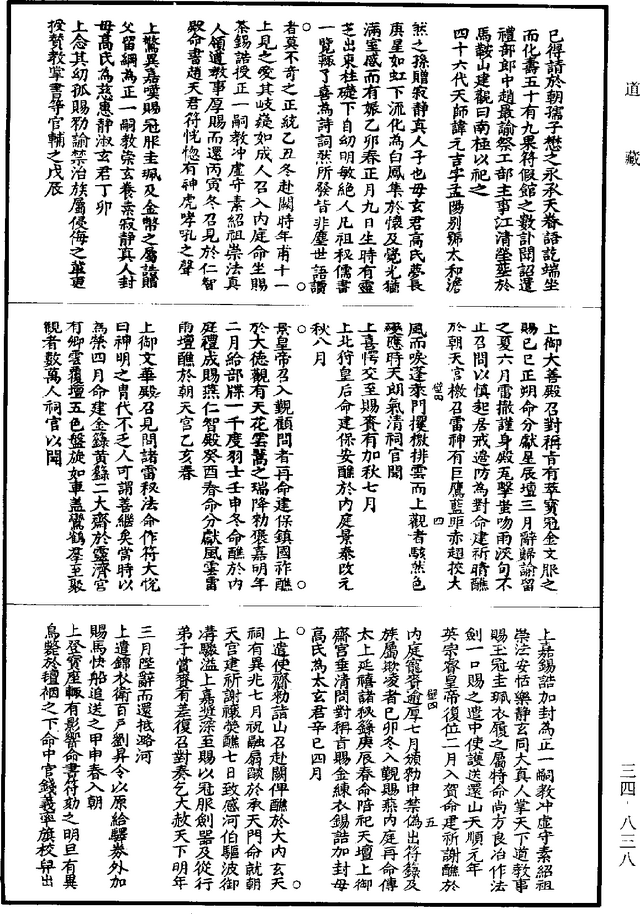 道藏
已得請於朝孺子懋之永承天眷語訖端坐
而化壽五十有九果符假館之數訃聞詔遣
禮部郎中趙最諭祭工部主事江清瑩塟於
馬鞍山建觀曰南極以祀之
四十六代天師諱元吉字孟陽別號太和澹
然之孫贈寂靜真人子也母玄君高氏夢長
庚星如虹下流化為白鳳集於懷及覺光猶
滿室感而有娠乙卯春正月九日生時有靈
芝出東柱礎下自幼明敏絕人凡祖秘儒書
一覽輒了喜為詩詞然所發皆非塵世語讀
者莫不奇之正統乙丑冬赴闕時年甫十一
上見之愛其岐嶷如成人召入內庭命坐賜
茶錫誥授正一嗣教冲虛守素紹祖崇法真
人領道教事厚賜而還丙寅冬召見於仁智
殿命書趙天君符恍惚有神虎哮吼之聲
上驚異嘉嘆賜冠服圭珮及金幣之屬誥贈
父留綱為正一嗣教崇玄養素寂靜真人封
母高氏為慈惠靜淑玄君丁卯
上念其幼孤賜勑諭禁治族屬侵侮之輩更
授贊教掌書等官輔之戊辰
上御大善殿召對稱旨有萃寶冠金文服之
賜己巳正朔命分獻星辰壇三月辭歸諭留
之夏六月雷撤謹身殿瓦擊蚩吻雨浹旬不
止召問以慎起居戒邊防為對命建祈晴醮
於朝天宮檄召雷神有巨鷹藍距赤趐挍大
壁四 四
風而唳蓬萊門攫檄排雲而上觀者駭然色
變應時天朗氣清祠官聞
上喜愕交至賜賚有加秋七月
上北狩皇后命建保安醮於內庭景泰改元
秋八月
景皇帝召入覲顧問者再命建保鎮國祚醮
於大德觀有天花雲鶴之瑞降勑褒嘉明年
二月給部牒一千度羽士壬申冬命醮於內
庭禮成賜燕仁智殿癸酉春命分獻風雲雷
雨壇醮於朝天宮乙亥春
上御文華殿召見問諸雷秘法命作符大悅
曰神明之胄代不乏人可謂善繼矣當時以
為榮四月命建金籙黃籙二大齋於靈濟宮
有卿雲覆壇五色盤旋如車盖鸞鶴羣至聚
觀者數萬人祠官以聞
上嘉錫誥加封為正一嗣教冲虛守素紹祖
崇法安恬樂靜玄同大真人掌天下道教事
賜玉冠圭珮衣履之屬特命尚方良冶作法
劍一口賜之遣中使護送還山天順元年
英宗睿皇帝復位二月入賀命建祈謝醮於
內庭寵賚逾厚七月頒勑申禁偽出符籙及
壁四 五
族屬欺凌者己卯冬入覲賜燕內庭再命傳
太上延禧諸秘籙庚辰春命陪祀天壇上御
齋宮垂清問對稱旨賜金練衣錫誥加封母
高氏為太玄君辛巳四月
上遣使齎勑詣山召赴闕俾醮於大內玄天
祠有異兆七月祝融扇燄於承天門命就朝
天宮建祈謝禳熒醮七日致感河伯驅波御
溝驟溢上嘉奬深至賜以冠服劍器及從行
弟子賞賚有差復召對奏乞大赦天下明年
三月陛辭而還抵潞河
上遣錦衣衛百戶劉昇令以原給驛券外加
賜馬快船追送之甲申春入朝
上登寶座輙有影響命書符劾之明旦有異
鳥斃於檀栶之下命中官錢義寧旗校舁出
三四·八三八